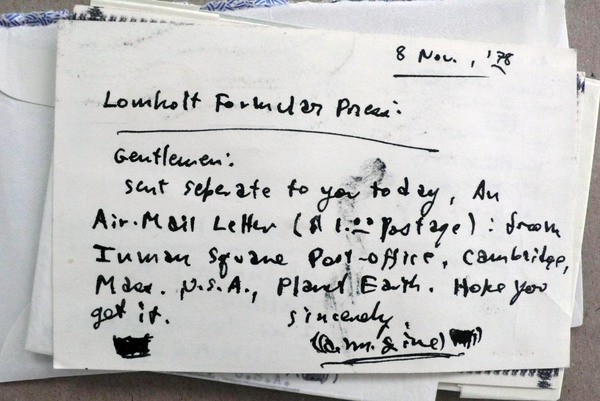 8 Nov., '78
Lomholt Formular Press:
Gentlemen:
sent seperate to you today, An
Air-Mail Letter ($ 1.00 postage): from
Inman Square Post-office, Cambridge,
Mass. U.S.A., Planet Earth. Hope you
get it. sincerely